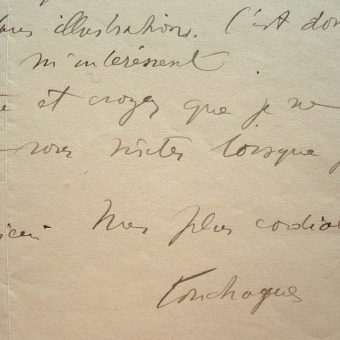 illustrations. C'est don
m'intéressent
et croyez que je ne
vous visiter lorsque j
Mes plus cordia